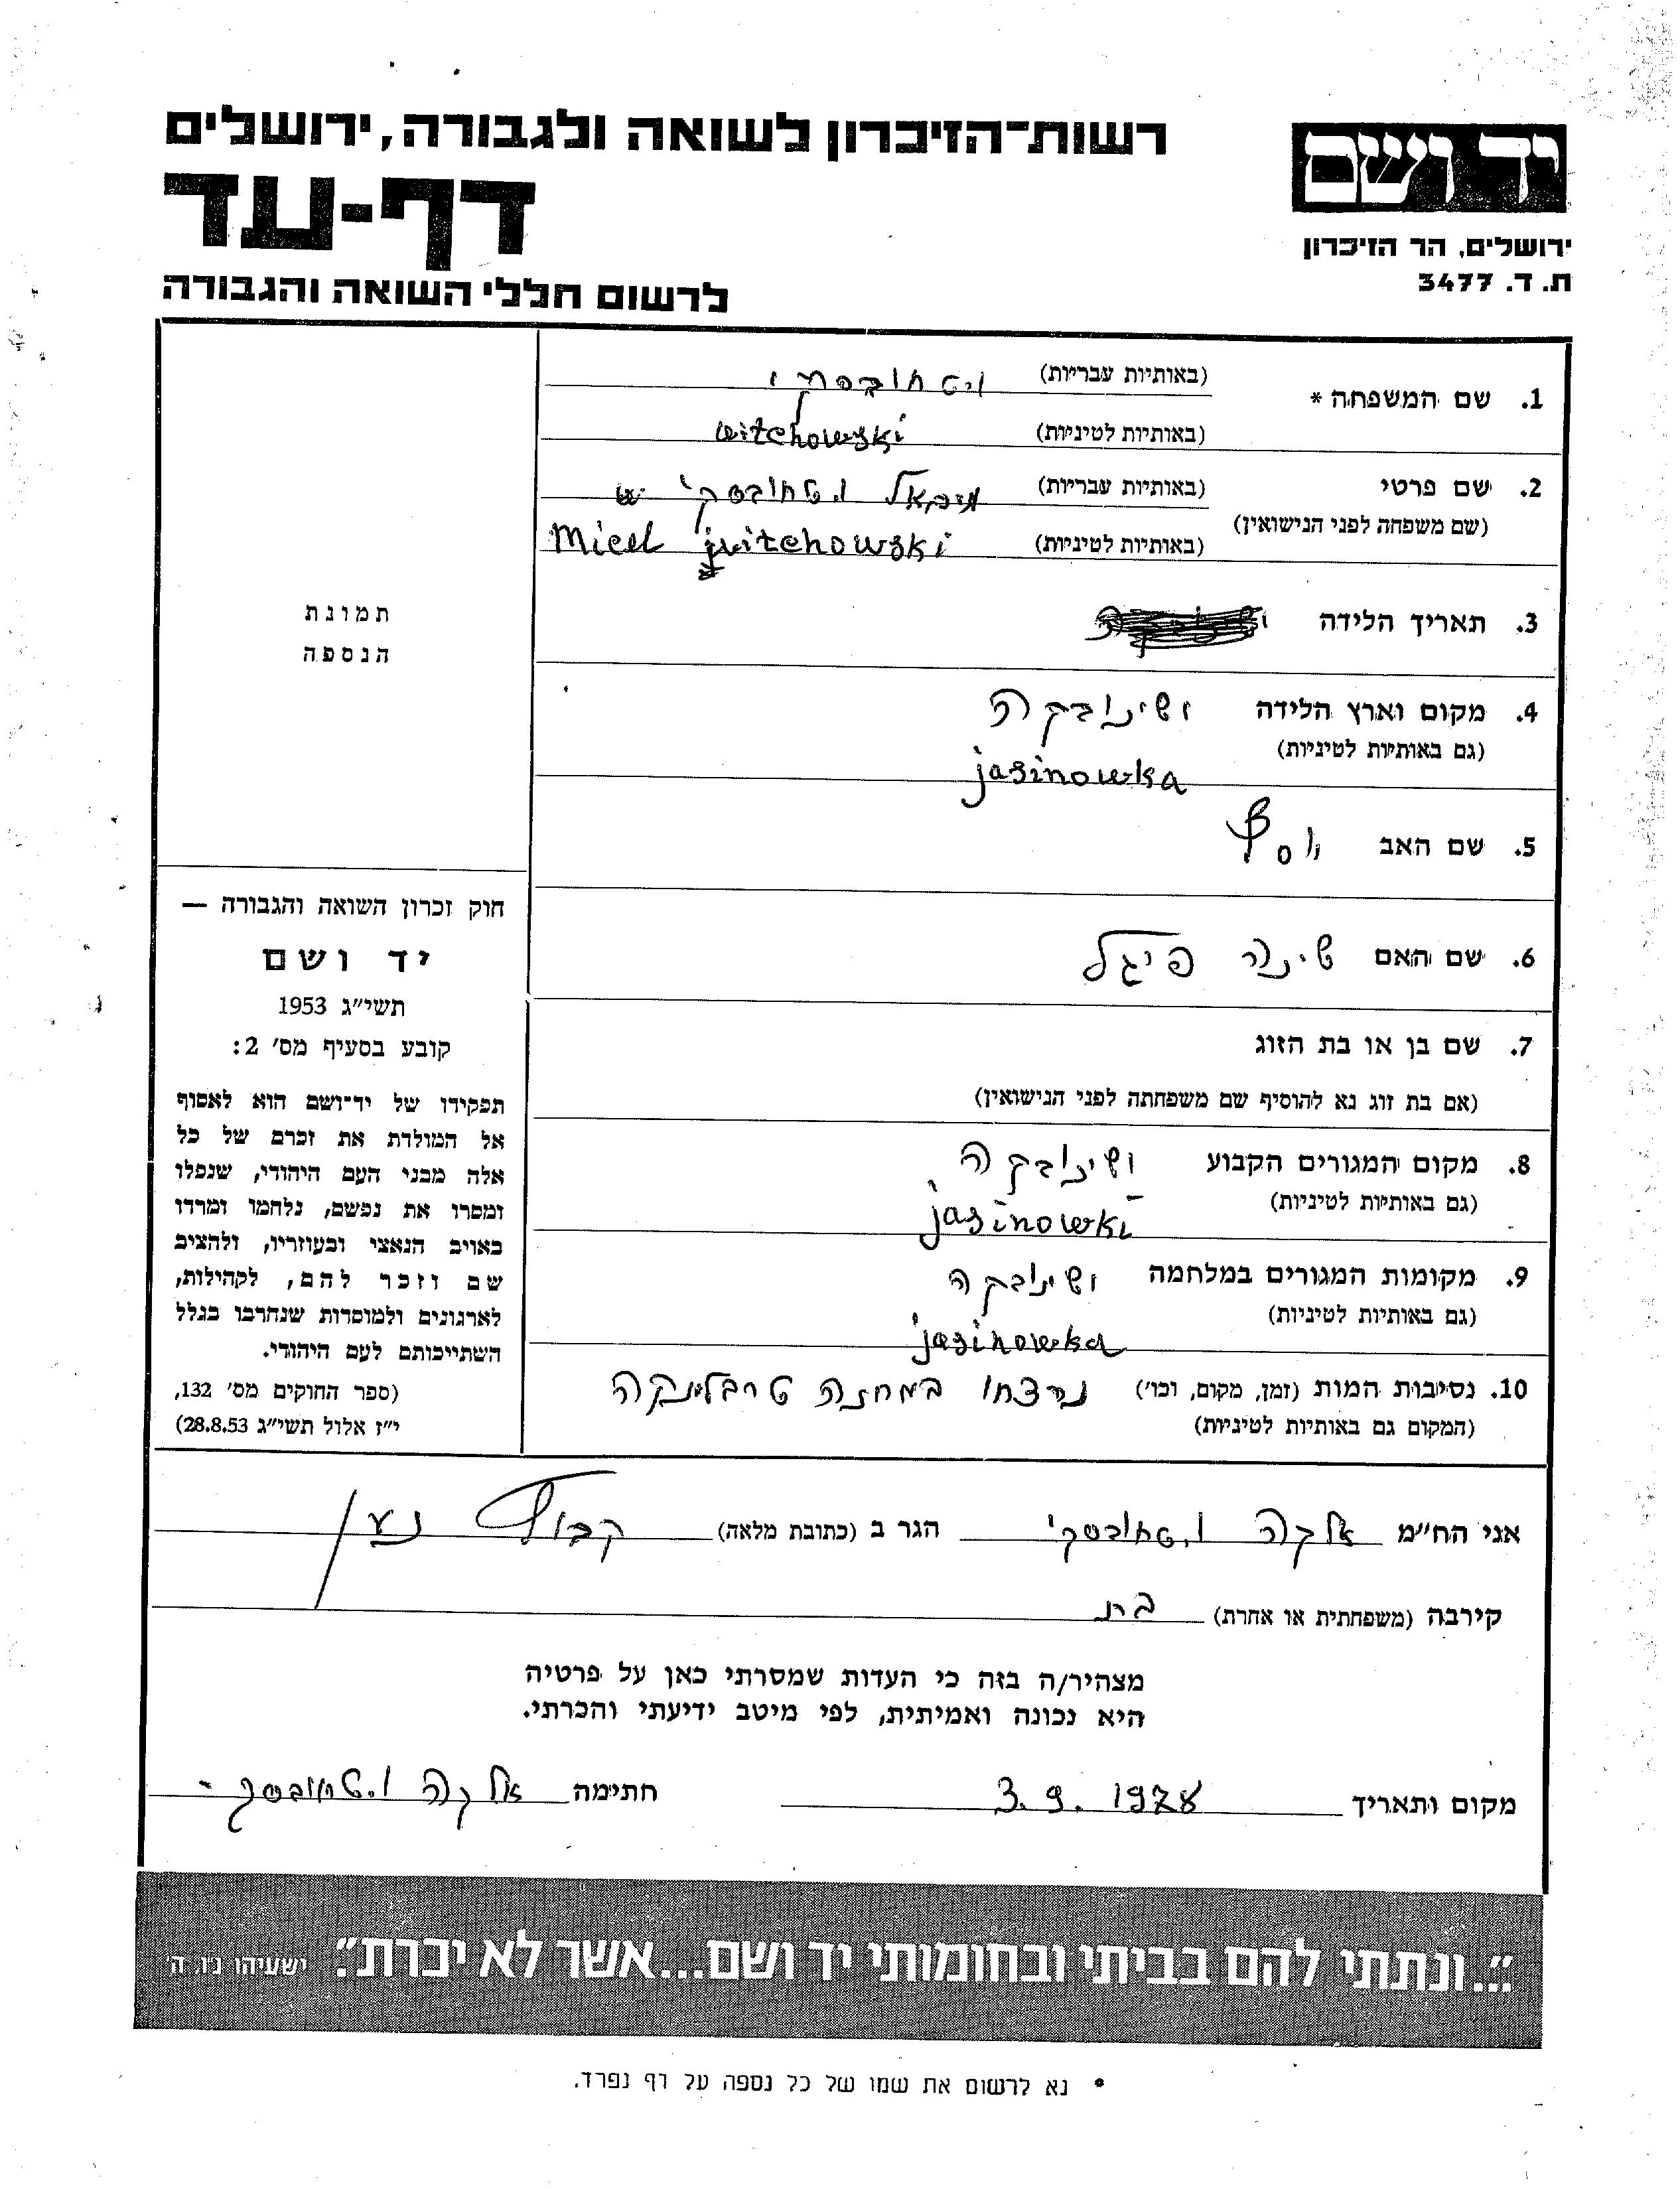 רשות־הזיכרון לשואה ולגבורה, ירושלים
יד ושם
דף-עד
ירושלים, הר הזיכרון
ת. ד. 3477
לרשום חללי השואה והגבורה
1. שם המשפחה * (באותיות עבריות) ויטחובסקי
(באותיות לטיניות) witchowski
2. שם פרטי (באותיות עבריות) מיכאל ויטחובסקי
(שם משפחה לפני הנישואין)
(באותיות לטיניות) Micel witchowski
3. תאריך הלידה
תמונת
הנספה
4. מקום וארץ הלידה ושינובקה
(גם באותיות לטיניות)
jasinowka
5. שם האב יוסף
6. שם האם שינה פיגל
7. שם בן או בת הזוג
(אם בת זוג נא להוסיף שם משפחתה לפני הנישואין)
8. מקום המגורים הקבוע ושינובקה
(גם באותיות לטיניות) jasinowki
9. מקומות המגורים במלחמה ושינובקה
(גם באותיות לטיניות)
jasinowka
10. נסיבות המות (זמן, מקום, וכו') נרצחו במחנה טרבלינקה
(המקום גם באותיות לטיניות)
חוק זכרון השואה והגבורה —
יד ושם
תשי״ג 1953
קובע בסעיף מס׳ 2:
תפקידו של יד־ושם הוא לאסוף
אל המולדת את זכרם של כל
אלה מבני העם היהודי, שנפלו
ומסרו את נפשם, נלחמו ומרדו
באויב הנאצי ובעוזריו, ולהציב
שם וזכר להם, לקהילות,
לארגונים ולמוסדות שנחרבו בגלל
השתייכותם לעם היהודי.
(ספר החוקים מס׳ 132,
י״ז אלול תשי״ג 28.8.53)
אני הח״מ אלקה ויטחובסקי הגר ב (כתובת מלאה) קבוץ נען
קירבה (משפחתית או אחרת) בת
מצהיר/ה בזה כי העדות שמסרתי כאן על פרטיה
היא נכונה ואמיתית, לפי מיטב ידיעתי והכרתי.
מקום ותאריך 3.9.1978 חתימה אלקה ויטחובסקי
״...ונתתי להם בביתי ובחומותי יד ושם...אשר לא יכרת״. ישעיהו נו, ה׳
* נא לרשום את שמו של כל נספה על דף נפרד.